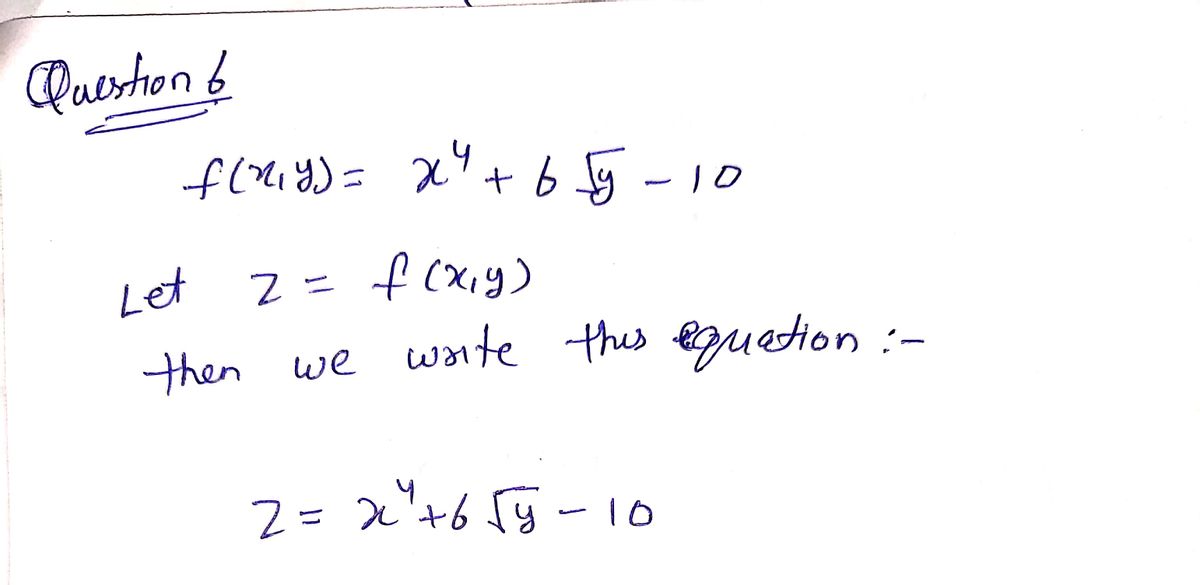 Question 6
f(x,y) = x⁴ + 6 √y - 10
Let z = f(x,y)
then we write this equation :-
z = x⁴+6 √y - 10